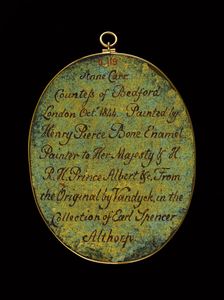 Anne Carr
Countess of Bedford
London Oct.r 1844. Painted by
Henry Pierce Bone Enamel
Painter to Her Majesty & H.
R. H. Prince Albert &c. From
the Original by Vandyck, in the
Collection of Earl Spencer
Althorp.